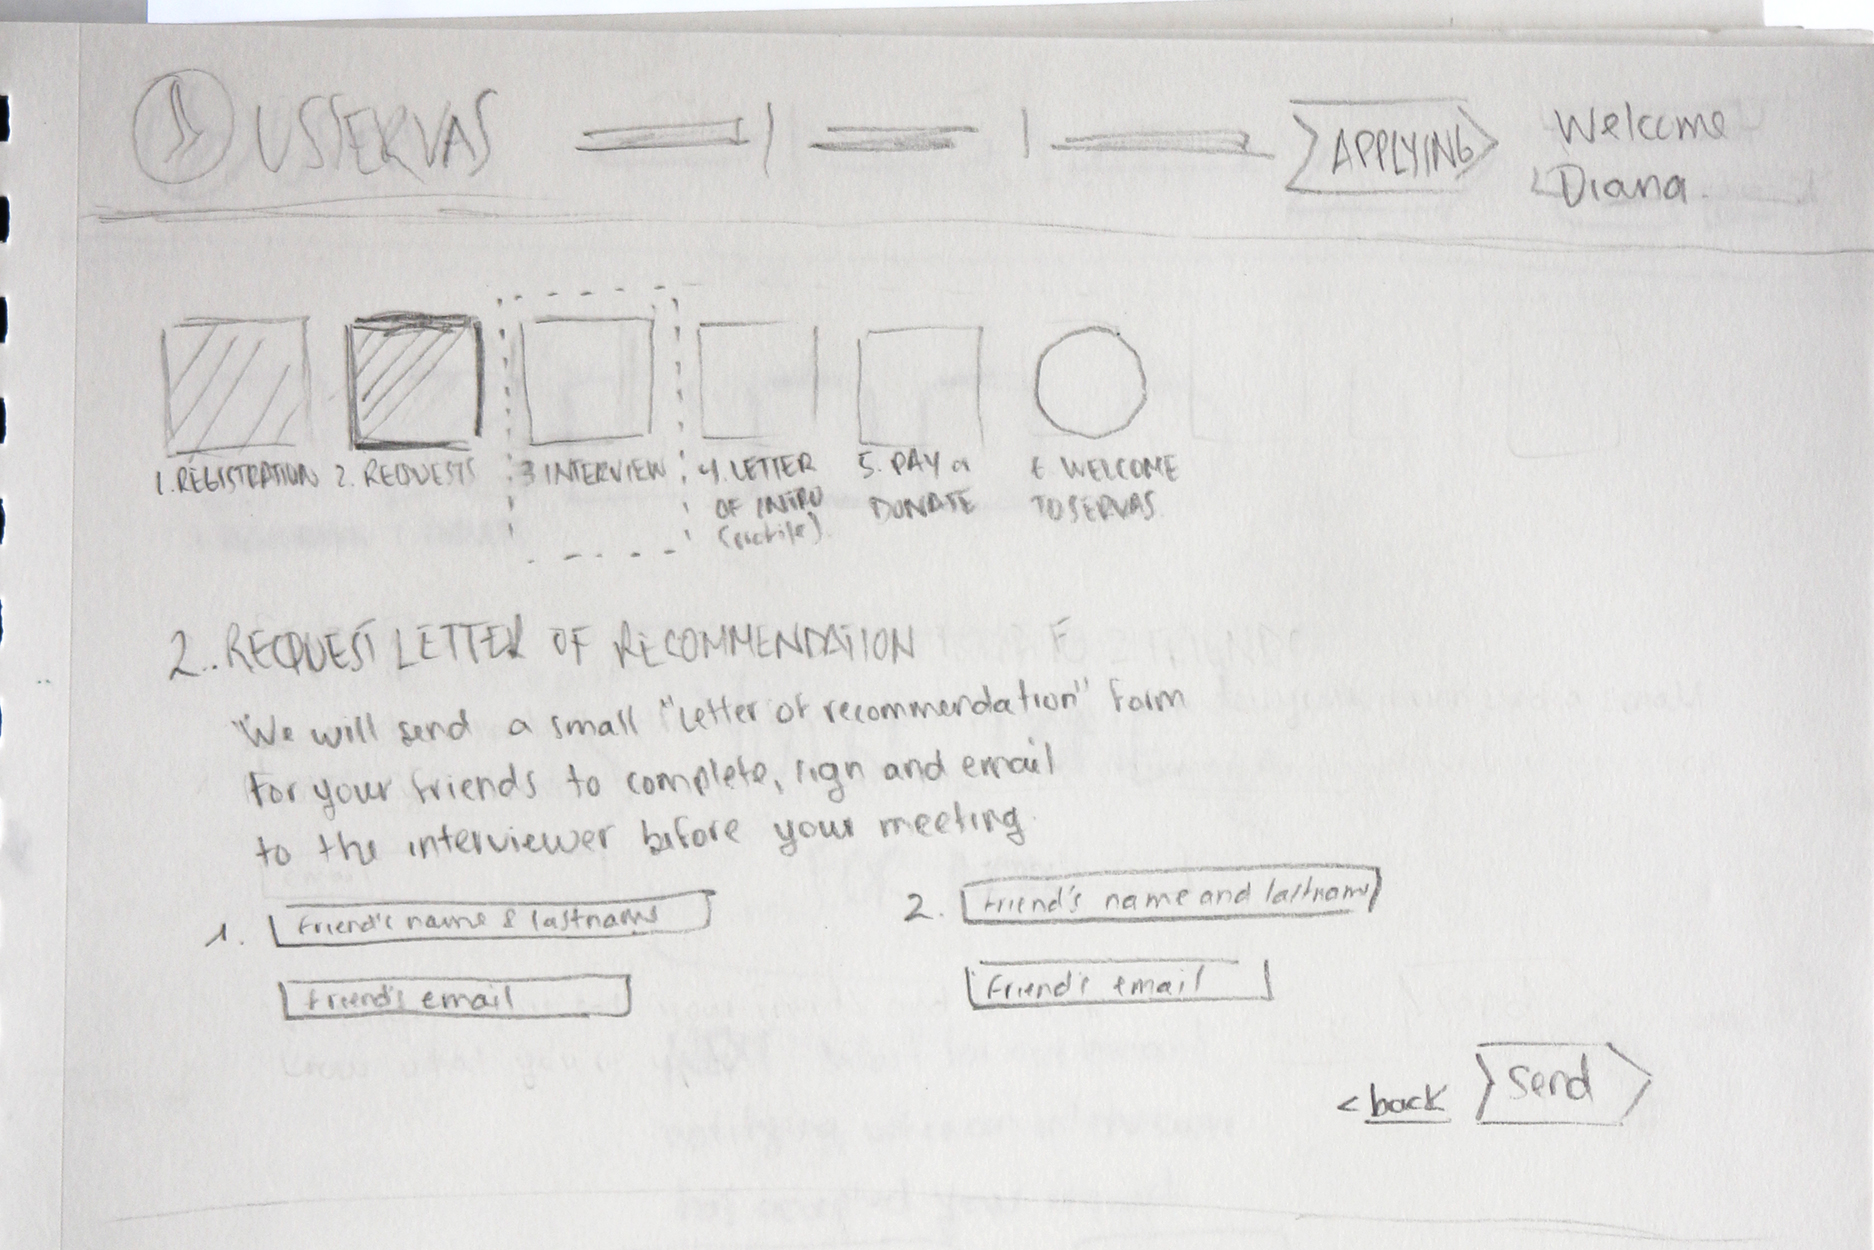 USSERVAS
APPLYING
Welcome
Diana.
1. REGISTRATION
2. REQUESTS
3 INTERVIEW
4. LETTER
OF INTRO
(profile)
5. PAY or
DONATE
6. WELCOME
TO SERVAS.
2.. REQUEST LETTER OF RECOMMENDATION
"We will send a small "Letter of recommendation" form
For your friends to complete, sign and email
to the interviewer before your meeting.
1. Friend's name & lastname
Friend's email
2. Friend's name and lastname
Friend's email
< back
Send